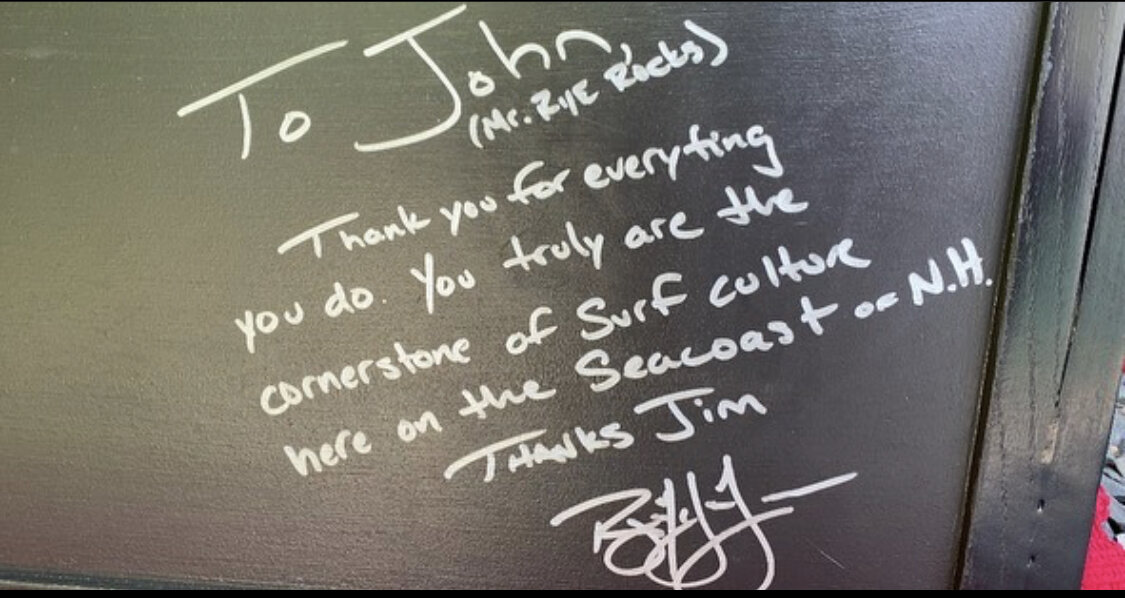 To John
(Mr. Rye Rocks)
Thank you for everyting
you do. You truly are the
cornerstone of Surf culture
here on the Seacoast of N.H.
THANKS Jim